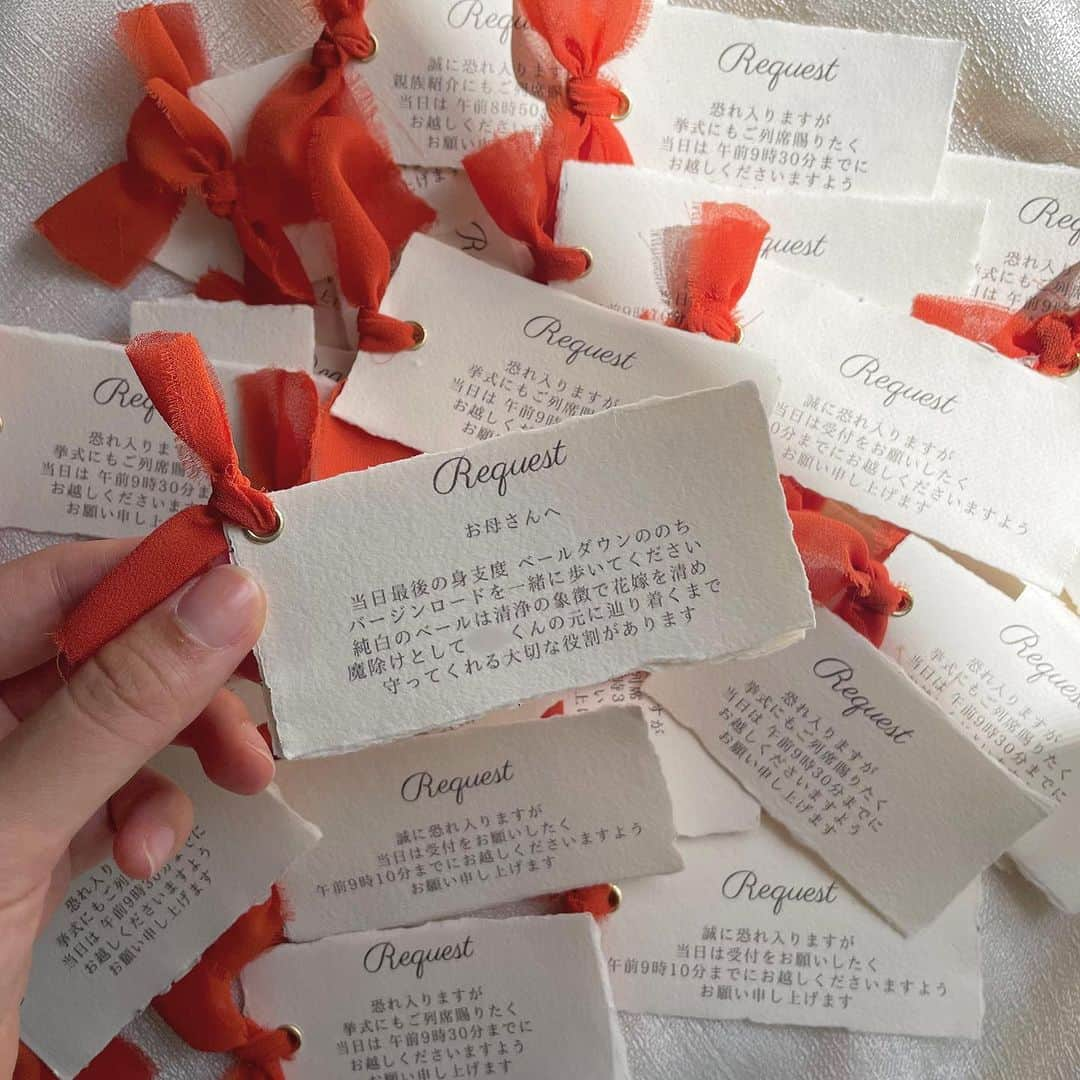 Requ
誠に恐れ入ります
親族紹介にもご列席
当日は 午前8時50
お越しくださいま
お願い
Request
恐れ入りますが
挙式にもご列席賜りたく
当日は 午前9時30分までに
お越しくださいますよう
Requ
恐れ入り
挙式にもご列
当日は 午前9
quest
Request
恐れ入りますが
挙式にもご列席賜
当日は 午前9時30分
お越しください
お願い
Request
誠に恐れ入りますが
当日は受付をお願いしたく
0分までにお越しくださいますよう
お願い申し上げます
Req
恐れ入りますが
挙式にもご列席賜り
当日は 午前9時30分ま
お越しくださいま
お願い申し上げ
Request
お母さんへ
当日最後の身支度 ベールダウンののち
バージンロードを一緒に歩いてください
純白のベールは清浄の象徴で花嫁を清め
魔除けとして くんの元に辿り着くまで
守ってくれる大切な役割があります
Request
恐れ入りますが
挙式にもご列席賜りたく
当日は 午前9時30分までに
お越しくださいますよう
お願い申し上げます
Reque
恐れ入りますが
挙式にもご列席賜りたく
当日は 午前9時30分までに
お越しくださいますよう
Request
誠に恐れ入りますが
当日は受付をお願いしたく
午前9時10分までにお越しくださいますよう
お願い申し上げます
恐れ入り
挙式にもご列
当日は 午前9時30分までに
お越しくださいますよう
お願い申し上げます
Request
誠に恐れ入りますが
当日は受付をお願いしたく
午前9時10分までにお越しくださいますよう
お願い申し上げます
Request
恐れ入りますが
挙式にもご列席賜りたく
当日は 午前9時30分までに
お越しくださいますよう
お願い申し上げます